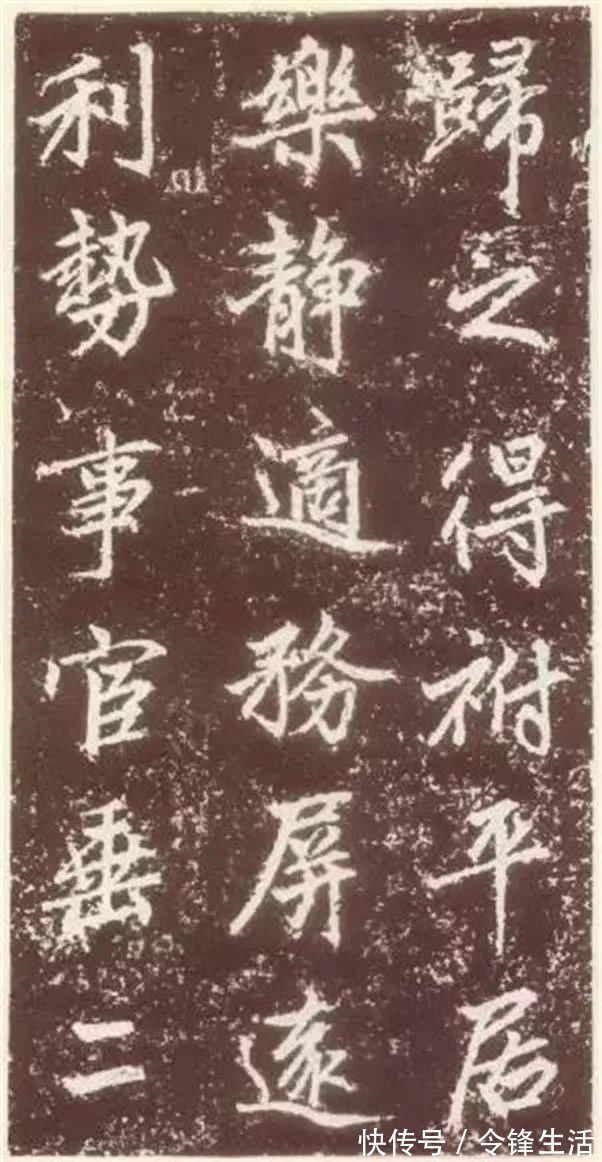 歸之得祔平居
樂静適務屏遠
利勢事宦垂二
快传号 / 令锋生活